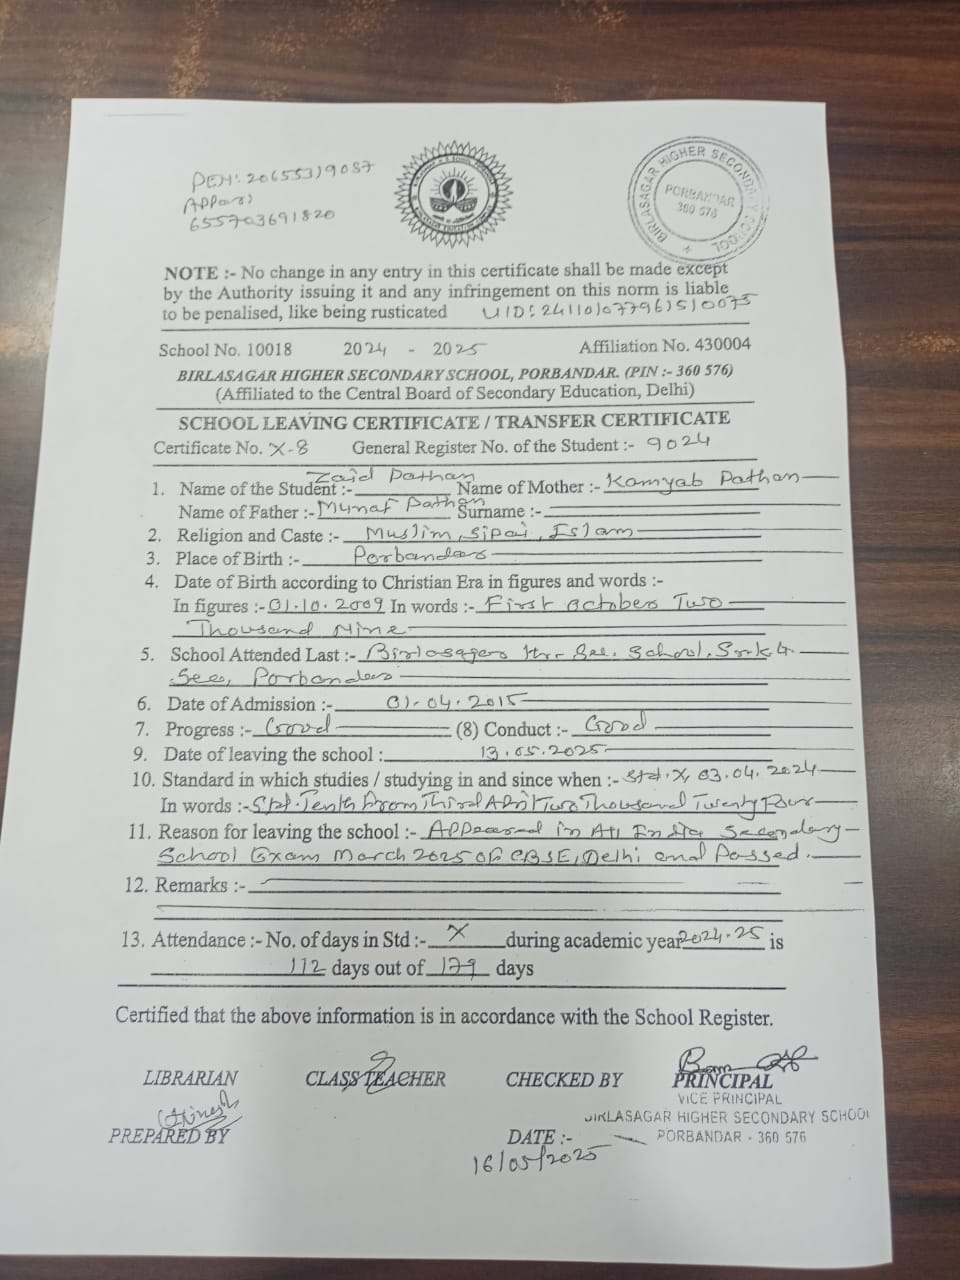 PEN: 20655319087
Appar)
655703691820
BIRLASAGAR HIGHER SECONDARY SCHOOL
PORBANDAR
360 576
NOTE :- No change in any entry in this certificate shall be made except
by the Authority issuing it and any infringement on this norm is liable
to be penalised, like being rusticated UID: 241101077961510075
School No. 10018 2024 - 2025 Affiliation No. 430004
BIRLASAGAR HIGHER SECONDARY SCHOOL, PORBANDAR. (PIN :- 360 576)
(Affiliated to the Central Board of Secondary Education, Delhi)
SCHOOL LEAVING CERTIFICATE / TRANSFER CERTIFICATE
Certificate No. X-8 General Register No. of the Student :- 9024
1. Name of the Student :- Zaid Pathan Name of Mother :- Kamyab Pathan
Name of Father :- Munaf Pathan Surname :-
2. Religion and Caste :- Muslim, Sipai, Islam
3. Place of Birth :- Porbandar
4. Date of Birth according to Christian Era in figures and words :-
In figures :- 01.10.2009 In words :- First October Two
Thousand Nine
5. School Attended Last :- Birlasagar Hr. Sec. School,
Sec, Porbandar
6. Date of Admission :- 01.04.2015
7. Progress :- Good (8) Conduct :- Good
9. Date of leaving the school : 13.05.2025
10. Standard in which studies / studying in and since when :- Std. X, 03.04.2024
In words :- Std. Tenth From Third April Two Thousand Twenty Four
11. Reason for leaving the school :- Appeared in All India Secondary
School Exam March 2025 of CBSE, Delhi and Passed.
12. Remarks :-
13. Attendance :- No. of days in Std :- X during academic year 2024-25 is
112 days out of 179 days
Certified that the above information is in accordance with the School Register.
LIBRARIAN CLASS TEACHER CHECKED BY PRINCIPAL
VICE PRINCIPAL
BIRLASAGAR HIGHER SECONDARY SCHOOL
PREPARED BY DATE :- PORBANDAR - 360 576
16/05/2025